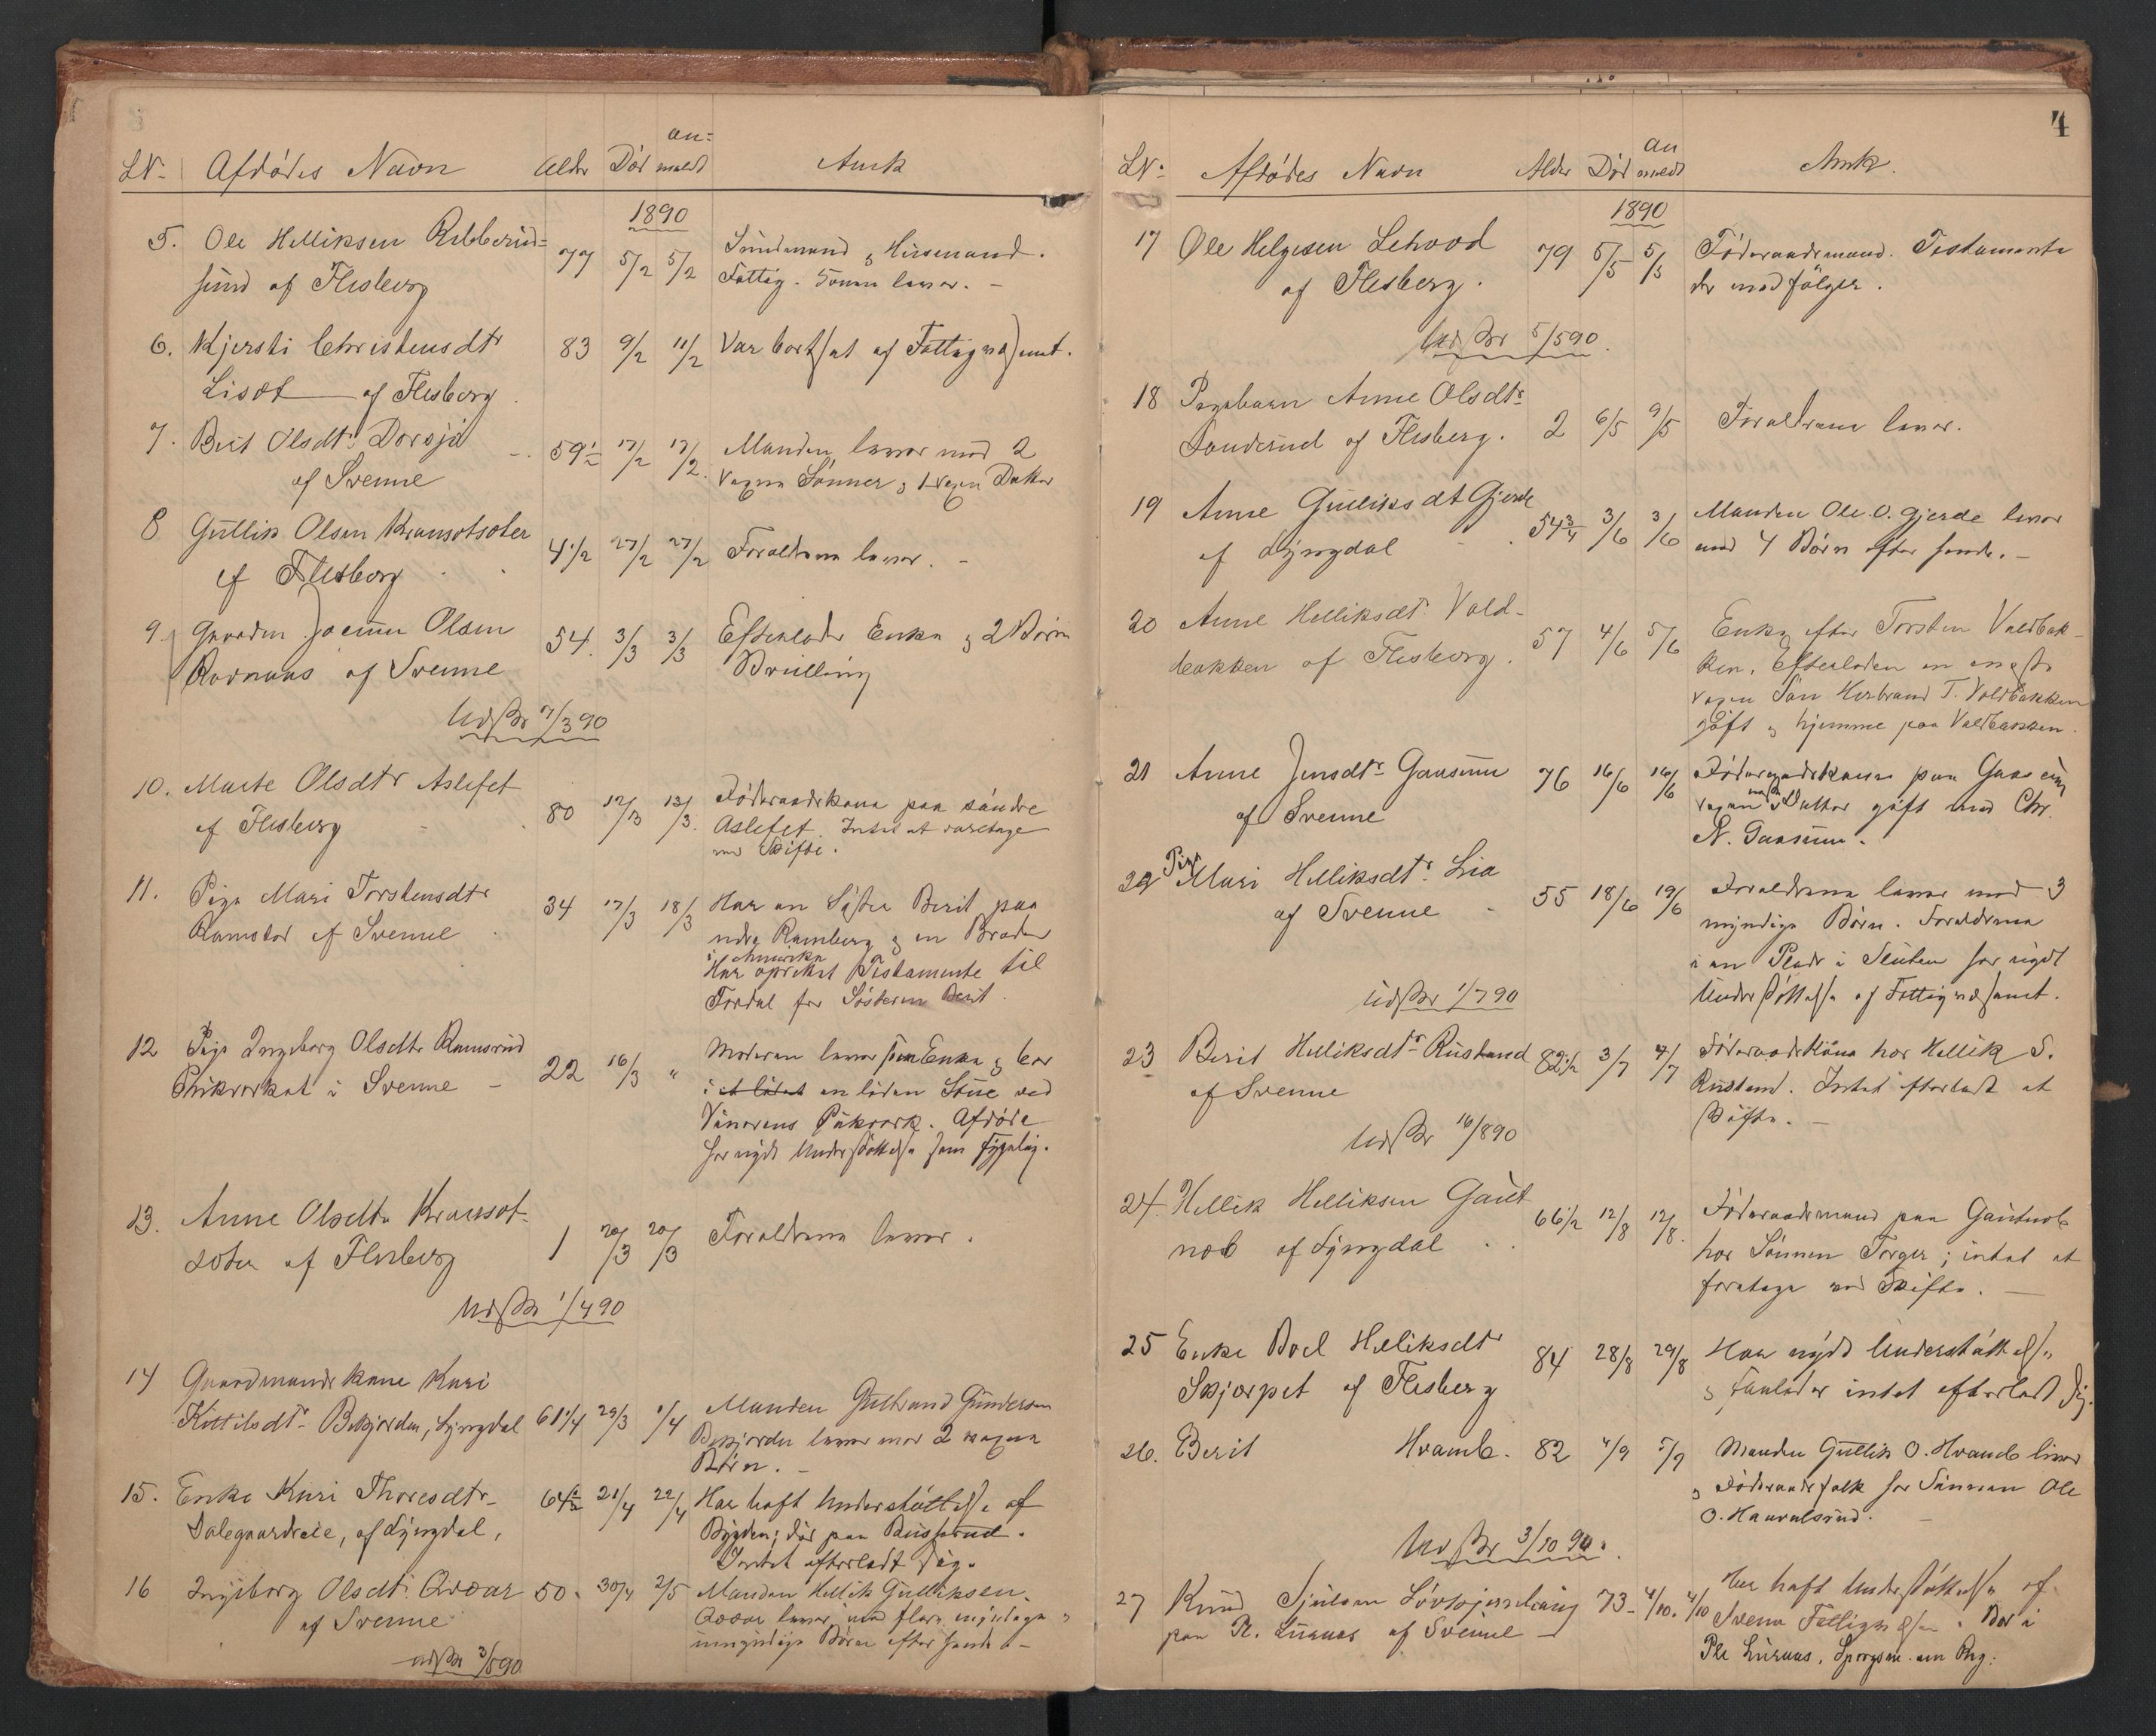 an=
LN. Afdødes Navn Alder Død meldt Amk
1890
5. Ole Helliksen Ribberud=
sund af Flesberg 77 5/2 5/2 Sundmand & Husmand.
Fattig. Sønnen lever. –
6. Kjersti Christensdtr 83 9/2 11/2 Var bortsat af Fattigvæsenet.
Lisdt – af Flesberg.
7. Berit Olsdtr Dorsjø 59½ 17/2 17/2. Manden lever med 2
af Svenne voxne Sønner & 1 voxen Datter
8 Gullik Olsen Kransetsæter 4½ 27/2 27/2 Forældrene lever. –
af Flesberg
9. Gaardm. Joenn Olsen 54. 3/3 3/3 Efterlader Enke & 2 Børn
Ravnaas af Svenne
Udskr 7/3 90
10. Marte Olsdtr Aslefet 80 12/3 13/3. Føderaadskone paa søndre
af Flesberg Aslefet. Intet at foretage
ved Skifte.
11. Pige Mari Torstensdtr 34 17/3 18/3 Har en Søster Berit paa
Ramstad af Svenne ndre Ramberg & en Broder
i Amerika
Har oprettet Testamente til
Fordel for Søsteren Berit.
12 Pige Ingeborg Olsdtr Ramsrud 22 16/3 " Moderen lever som Enke & bor
i Svenne – i et lidet en liden Stue ved
Afdøde
har nydt Understøttelse som sygelig.
13. Anne Olsdtr Kranset- 1 20/3 20/3 Forældrene lever.
sæter af Flesberg
Udskr 1/4 90
14 Gaardmandskone Kari
Kittilsdtr Bekjorden, Lyngdal 61¼ 29/3 1/4 Manden Gulbrand Gundersen
Bekjorden lever med 2 voxne
Børn. –
15. Enke Kari Thoresdtr 64½ 21/4 22/4 Har haft Understøttelse af
Dalegaardseie, af Lyngdal, Bygden; død paa
Intet efterladt sig.
16 Ingeborg Olsdtr Qvaar 50. 30/4 2/5 Manden Hellik Gulliksen
af Svenne Qvaar lever, med flere myndige &
umyndige Børn efter hende –
Udskr 3/5 90
4
an
LN. Afdødes Navn Alder Død meldt Amk.
1890
17 Ole Helgesen Lehovd 79 5/5 5/5 Føderaadsmand. Testamente
af Flesberg. der medfølger.
Udskr 5/5 90.
18 Pigebarn Anne Olsdtr 2 6/5 9/5 Forældrene lever.
Sanderud af Flesberg.
19 Anne Gulliksdt Gjerde 54¾ 3/6 3/6 Manden Ole O. Gjerde lever
af Lyngdal med 4 Børn efter hende. –
20 Anne Helliksdtr Vald- 57 4/6 5/6 Enke efter Torsten Valdbak-
bakken af Flesberg. ken. Efterladen en eneste
voxen Søn Herbrand T. Valdbakken
gift & hjemme paa Valdbakken.
21 Anne Jensdtr Gaasum 76 16/6 16/6 Føderaadskone paa Gaasum
af Svenne voxen Datter gift med Chr.
N. Gaasum.
22 Pige Mari Helliksdtr Lia 55 18/6 19/6 Forældrene lever med 3
af Svenne myndige Børn. Forældrene
i en Plads i har nydt
Understøttelse af Fattigvæsenet.
Udskr 1/7 90
23 Berit Helliksdtr Rustand 82½ 3/7 4/7 Føderaadskone hos Hellik S.
af Svenne Rustand. Intet efterladt at
skifte. –
Udskr 16/8 90
24. Hellik Helliksen Gaut 66½ 12/8 12/8. Føderaadsmand paa Gautneb
neb af Lyngdal. hos Sønnen Torger; intet at
foretage ved Skifte. –
25 Enke Boel Helliksdtr 84 28/8 29/8 Har nydt Understøttelse
Skjærpet af Flesberg & intet efterladt sig.
26. Berit Hvamb. 82 4/9 5/9 Manden Gullik O. Hvamb lever
& Føderaadsfolk hos Sønnen Ole
O. Haavalsrud.
Udskr 3/10 90.
27 Knud Sjulsen 73 – 4/10. 4/10 Har haft Understøttelse af
paa Pl. Luraas af Svenne – Svene Fattigvæsen. Bor i
Pl. Luraas. Spørgsm. om Rug.